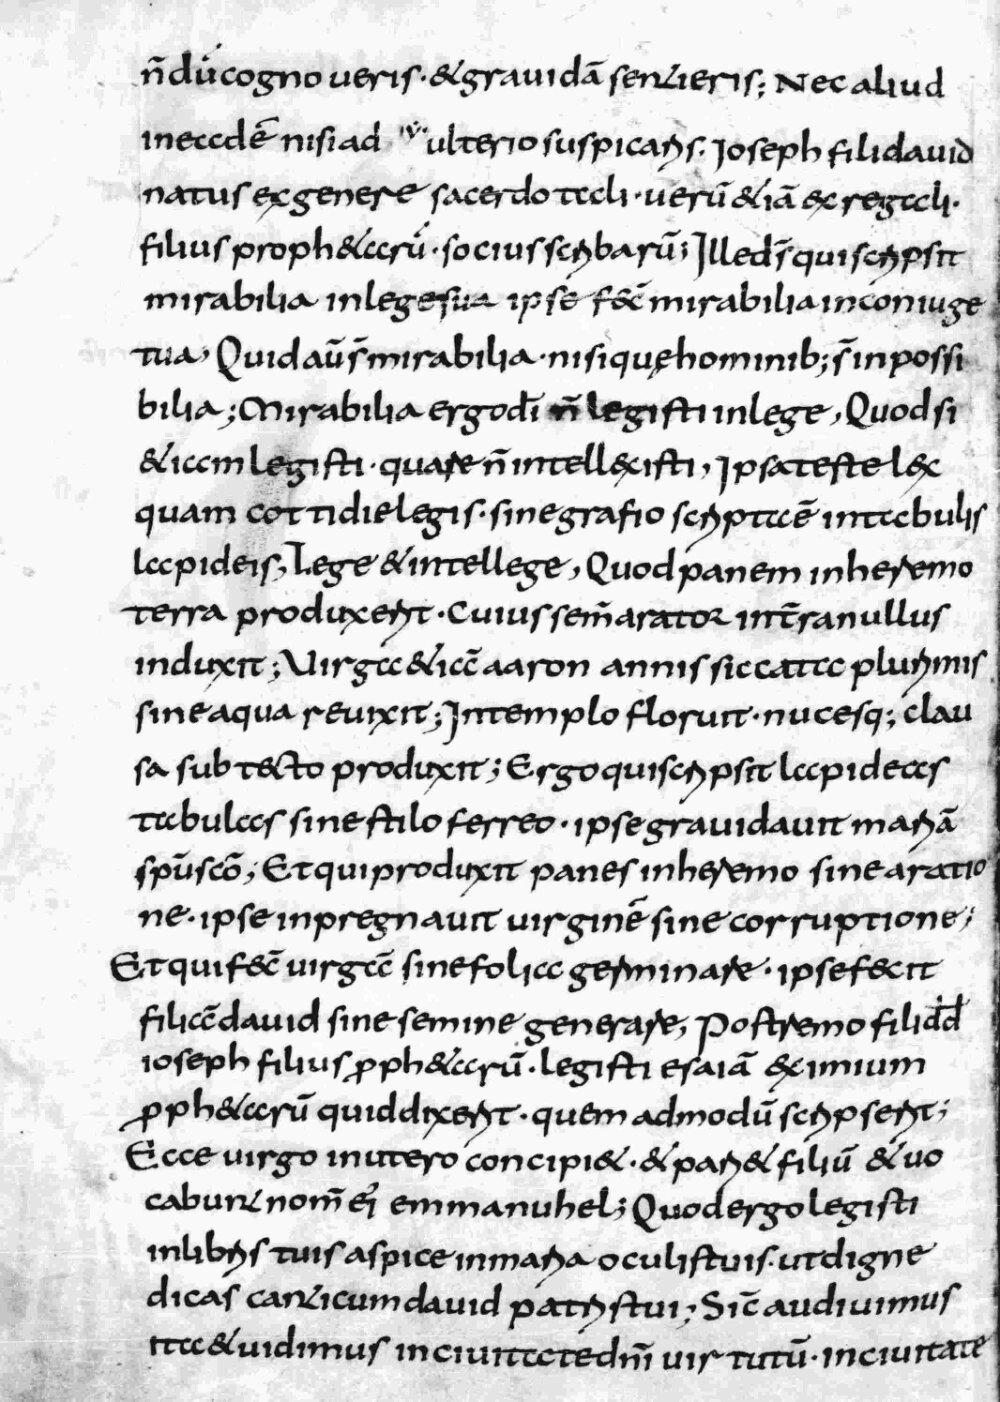 n̄ dū cognoueris · & grauidā sentieris; Nec aliud
in eadē nisi ad ulteriō suspicaris. Ioseph fili dauid
natus ex genere sacerdotali · uerū & iā ex regali ·
filius proph&arū · socius scribarū; Ille ds̄ qui scripsit
mirabilia in lege sua ipse fec̄ mirabilia in coniuge
tua, Quid aū s̄ mirabilia · nisi quę hominib; s̄ inpossi
bilia; Mirabilia ergo dī n̄ legisti in lege, Quod si
& iam legisti · quare n̄ intellexisti, Ipsa teste lex
quam cottidie legis · sine grafio scriptā ē in tabulis
lapideis, Lege & intellege, Quod panem in heremo
terra produxerit · Cuius sem̄ arator in t̄ra nullus
induxit; Uirga &iā aaron annis siccata plurimis
sine aqua reuixit; In templo floruit · nucesq; clau
sa sub tecto produxit; Ergo qui scripsit lapideas
tabulas sine stilo ferreo · ipse grauidauit mariā
sp̄u sc̄o; Et qui produxit panes in heremo sine aratio
ne · ipse inpregnauit uirginē sine corruptione;
Et qui fec̄ uirgā sine folia germinare · ipse fecit
filiā dauid sine semine generare; Postremo fili dd̄
ioseph filius proph&arū · legisti esaiā eximium
proph&arū quid dixerit · quem admodū scripserit;
Ecce uirgo in utero concipi& · & pari& filiū & uo
cabunt nom̄ eī emmanuhel; Quod ergo legisti
in libris tuis aspice in maria oculis tuis · ut digne
dicas canticum dauid patris tui; Sic̄ audiuimus
ita & uidimus in ciuitate dn̄i uirtutū · in ciuitate